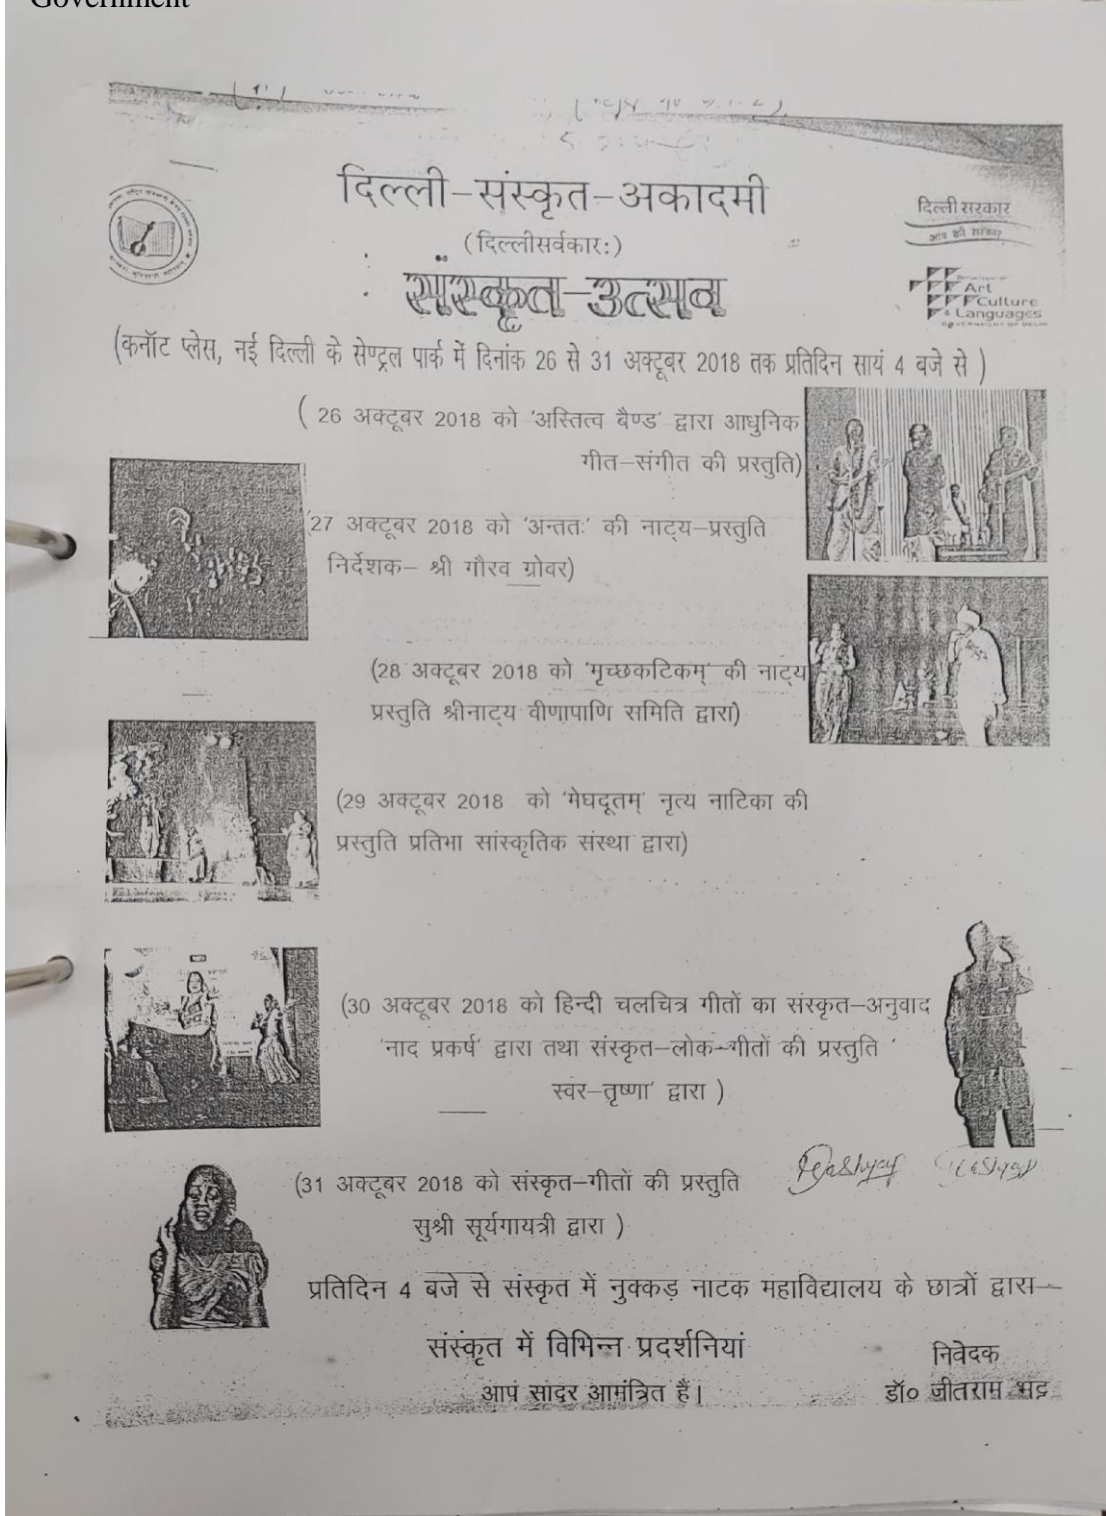 Government
दिल्ली–संस्कृत–अकादमी
(दिल्लीसर्वकारः)
दिल्ली सरकार
आप की सरकार
सांस्कृत–उत्सव
Art
Culture
& Languages
GOVERNMENT OF DELHI
(कनॉट प्लेस, नई दिल्ली के सेण्ट्रल पार्क में दिनांक 26 से 31 अक्टूबर 2018 तक प्रतिदिन सायं 4 बजे से )
( 26 अक्टूबर 2018 को 'अस्तित्व बैण्ड' द्वारा आधुनिक
गीत–संगीत की प्रस्तुति)
(27 अक्टूबर 2018 को 'अन्ततः' की नाट्य–प्रस्तुति
निर्देशक– श्री गौरव ग्रोवर)
(28 अक्टूबर 2018 को 'मृच्छकटिकम्' की नाट्य
प्रस्तुति श्रीनाट्य वीणापाणि समिति द्वारा)
(29 अक्टूबर 2018 को 'मेघदूतम्' नृत्य नाटिका की
प्रस्तुति प्रतिभा सांस्कृतिक संस्था द्वारा)
(30 अक्टूबर 2018 को हिन्दी चलचित्र गीतों का संस्कृत–अनुवाद
'नाद प्रकर्ष' द्वारा तथा संस्कृत–लोक–गीतों की प्रस्तुति '
स्वर–तृष्णा' द्वारा )
(31 अक्टूबर 2018 को संस्कृत–गीतों की प्रस्तुति
सुश्री सूर्यगायत्री द्वारा )
प्रतिदिन 4 बजे से संस्कृत में नुक्कड़ नाटक महाविद्यालय के छात्रों द्वारा–
संस्कृत में विभिन्न प्रदर्शनियां
आप सादर आमंत्रित है।
निवेदक
डॉ० जीतराम भट्ट